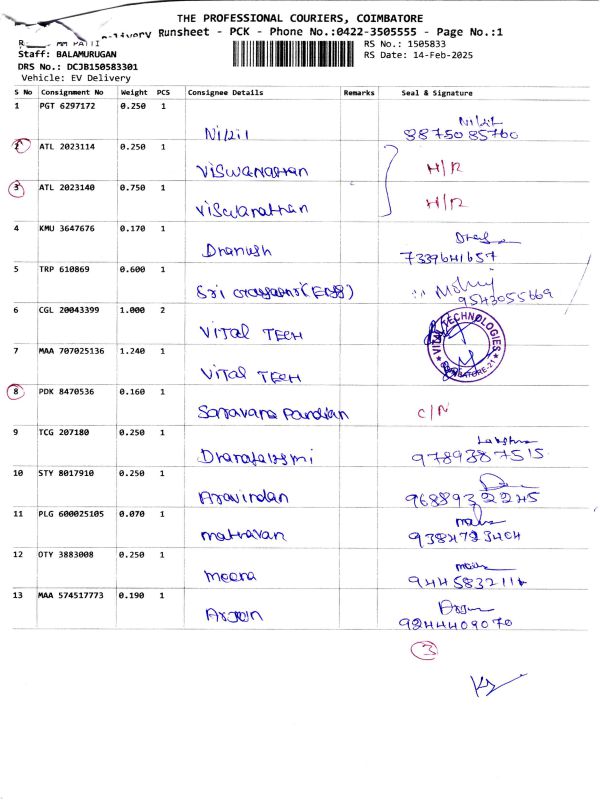 THE PROFESSIONAL COURIERS, COIMBATORE
Runsheet - PCK - Phone No.:0422-3505555 - Page No.:1
RS No.: 1505833
Staff: BALAMURUGAN
RS Date: 14-Feb-2025
DRS No.: DCJB150583301
Vehicle: EV Delivery
S No Consignment No Weight PCS Consignee Details Remarks Seal & Signature
1 PGT 6297172 0.250 1
Nikil 8875085760
2 ATL 2023114 0.250 1
Viswanathan H/R
3 ATL 2023140 0.750 1
Viswanathan H/R
4 KMU 3647676 0.170 1
Dhanush 7339641657
5 TRP 610869 0.600 1
Sri 9543055669
6 CGL 20043399 1.000 2
VITAL TECH
VITAL TECHNOLOGIES
COIMBATORE-21
7 MAA 707025136 1.240 1
VITAL TECH
8 PDK 8470536 0.160 1
Saravana Pandian C/N
9 TCG 207180 0.250 1
Dhanalakshmi 9789387515
10 STY 8017910 0.250 1
Aravindan 9688932245
11 PLG 600025105 0.070 1
Mathavan 9384723404
12 OTY 3883008 0.250 1
meena
13 MAA 574517773 0.190 1
Arjun 9244409070
3